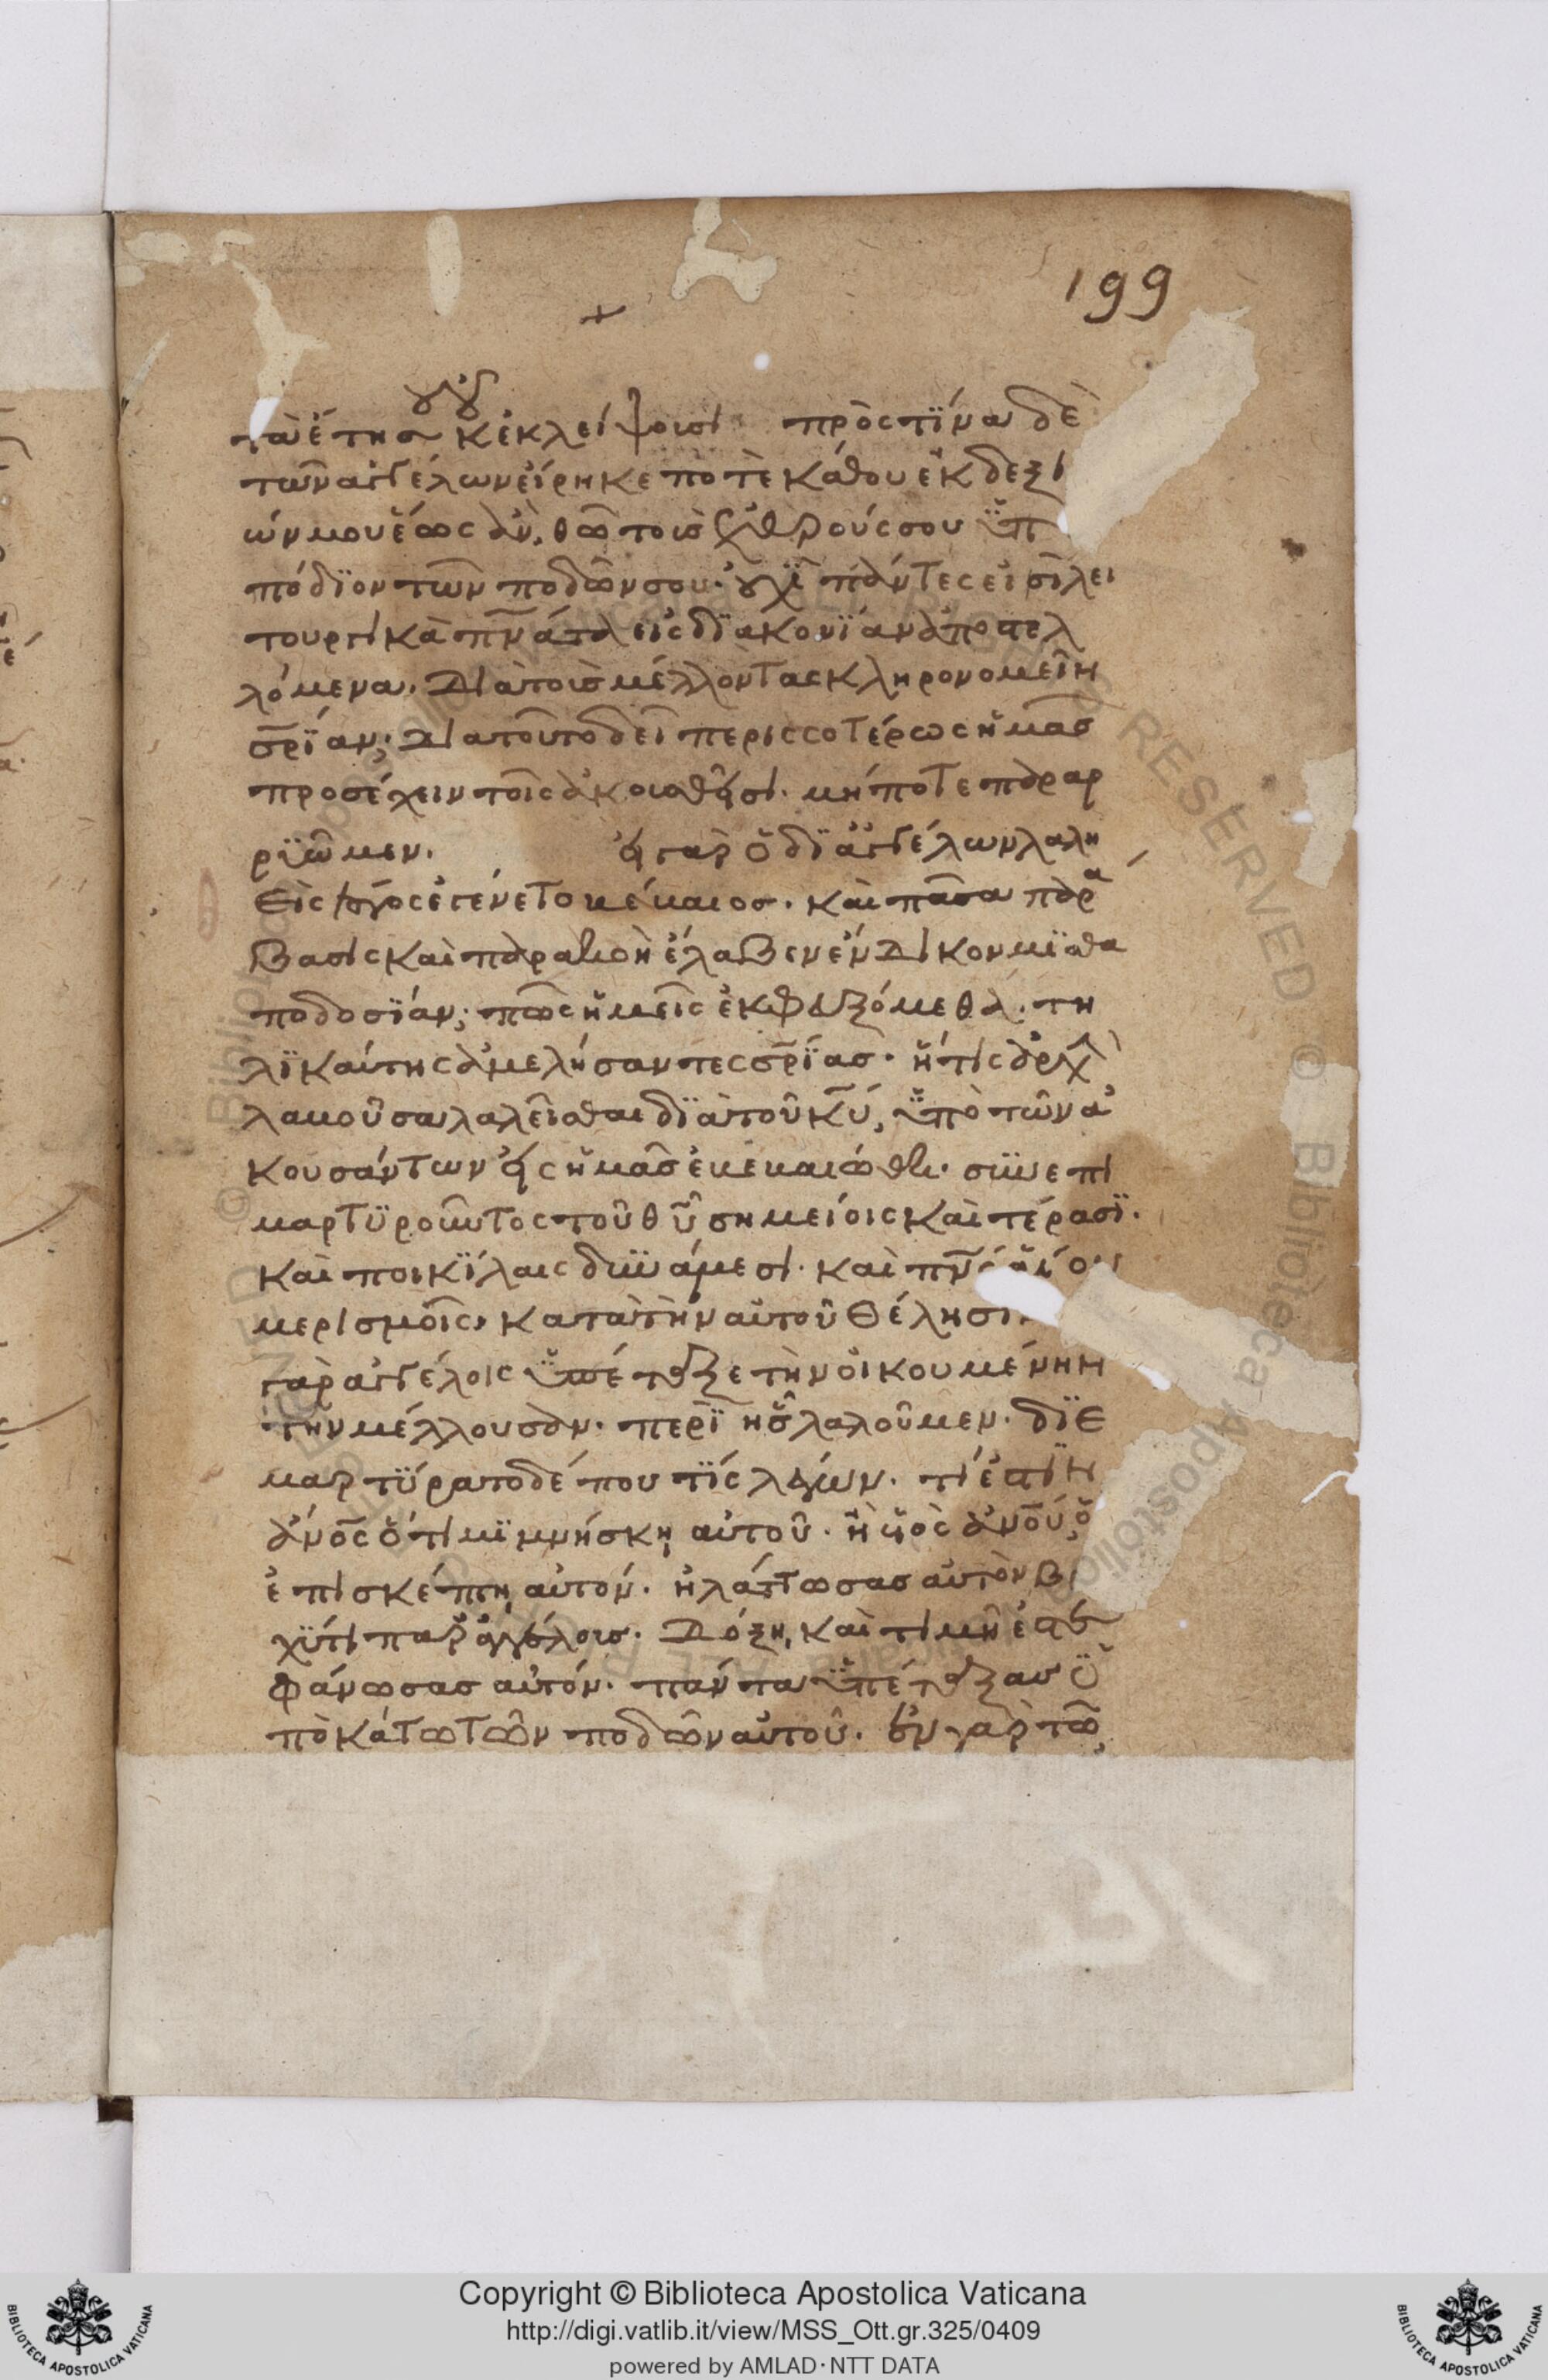 199
τὰ ἔτη σου οὐκ ἐκλείψουσι πρὸς τΐνα δὲ
τῶν ἀγγέλων εἴρηκε ποτὲ κάθου ἐκ δεξι
ών μου ἕως ἀν, θῶ τοὺς ἐχθρούς σου ὑπ
πόδϊον τῶν ποδῶν σου· οὐχῒ πάντες εἰσῒ λει
τουργικὰ πν̅άτα εἰς δϊακονΐαν ἀποστελ
λόμενα. διὰ τοὺς μέλλοντας κληρονομεῖν
σρ̅ΐαν; διατοῦτο δεῖ περισσοτέρως ἡμᾶσ
προσέχειν τοῖς ἀκουσθεῖσι. μήποτε παραρ
ρϊῶμεν. εἰ γὰρ ὁ δϊ ἀγγέλων λαλη
Θεὶς λόγος ἐγένετο βέβαιοσ. καὶ πᾶσα παρα
βασις καὶ παρακοὴ ἔλαβεν ἔνδικον μϊσθα
ποδοσΐαν; πῶς ἡμεῖς ἐκφευξόμεθα. τη
λϊκαύτης ἀμελήσαντες σρ̅ΐασ. ἥτις ἀρχὴ
λαβοῦσα λαλεῖσθαι δϊὰ τοῦ κ̅υ, ὑπὸ τῶν ἀ
κουσάντων εἰς ἡμᾶς ἐβεβαιώθη. συνεπι
μαρτϋροῦντος τοῦ θ̅υ σημείοις καὶ τέρασϊ.
καὶ ποικΐλαις δυνάμεσι. καὶ πν̅ς ἁγίου
μερισμοῖς, κατὰ τὴν αὐτοῦ θέλησι
γὰρ ἀγγέλοις ὑπέταξε τὴν οἰκουμένην
τὴν μέλλουσαν. περῒ ἧς λαλοῦμεν. δϊε
μαρτΰρατο δέ που τῒς λέγων. τί ἐστϊν
ἀν̅ος ὅτι μϊμνήσκη αὐτοῦ. ἢ υἱὸς ἀν̅ου, ὅ
ἐπισκέπτη αὐτόν. ἠλάττωσασ αὐτὸν β
χΰτι παρ ἀγγέλους. δόξη, καὶ τιμῆ ἐστε
φάνωσασ αὐτόν. πάντα ὑπέταξασ ὑ
πὸκάτω τῶν ποδῶν αὐτοῦ. ἐν γὰρ τῶ,
Copyright © Biblioteca Apostolica Vaticana
http://digi.vatlib.it/view/MSS_Ott.gr.325/0409
powered by AMLAD·NTT DATA